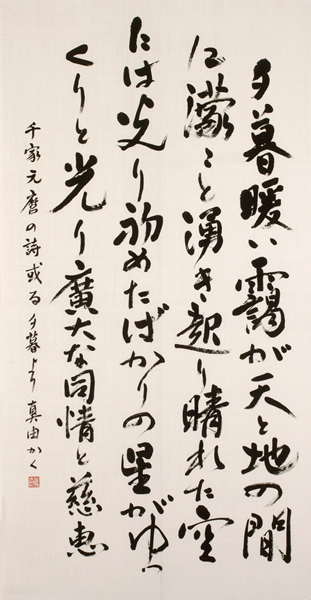 夕暮暖い靄が天と地の間
に濛々と湧き起り晴れた空
には光り初めたばかりの星がゆつ
くりと光り廣大な同情と慈恵
千家元麿の詩或る夕暮より 真由かく